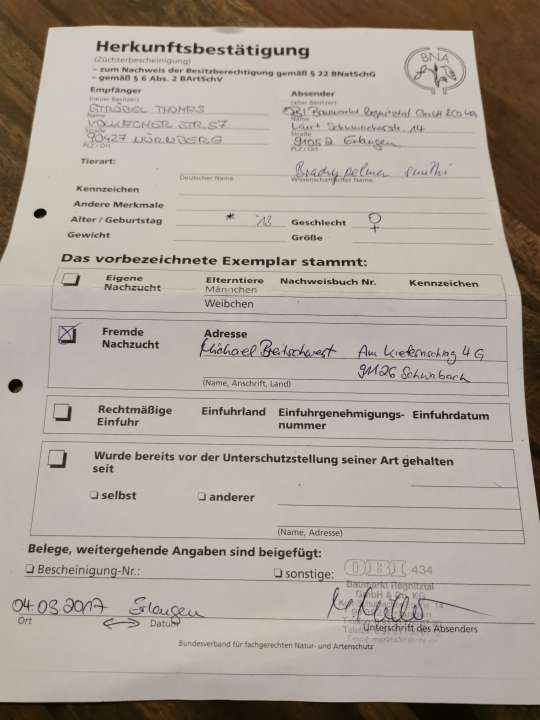 Herkunftsbestätigung
(Züchterbescheinigung)
– zum Nachweis der Besitzberechtigung gemäß § 22 BNatSchG
– gemäß § 6 Abs. 2 BArtSchV
BNA
Empfänger Absender
(neuer Besitzer) (alter Besitzer)
STRÖBEL THOMAS OBI Baumarkt Regnitztal GmbH & CO KG
Name Name
STR. 57 Kurt Schumacherstr. 14
Straße Straße
90427 NÜRNBERG 91052 Erlangen
PLZ / Ort PLZ / Ort
Tierart: Brachypelma smithi
Deutscher Name Wissenschaftlicher Name
Kennzeichen
Andere Merkmale
Alter / Geburtstag * '13 Geschlecht ♀
Gewicht Größe
Das vorbezeichnete Exemplar stammt:
Eigene Elterntiere Nachweisbuch Nr. Kennzeichen
Nachzucht Männchen
Weibchen
Fremde Adresse
Nachzucht Michael Breitschwert Am 4 G
91126 Schwabach
(Name, Anschrift, Land)
Rechtmäßige Einfuhrland Einfuhrgenehmigungs- Einfuhrdatum
Einfuhr nummer
Wurde bereits vor der Unterschutzstellung seiner Art gehalten
seit
selbst anderer
(Name, Adresse)
Belege, weitergehende Angaben sind beigefügt:
Bescheinigung-Nr.: sonstige: OBI 434
Baumarkt Regnitztal
GmbH & Co. KG
04.03.2017 Erlangen
Ort Datum Unterschrift des Absenders
Bundesverband für fachgerechten Natur- und Artenschutz